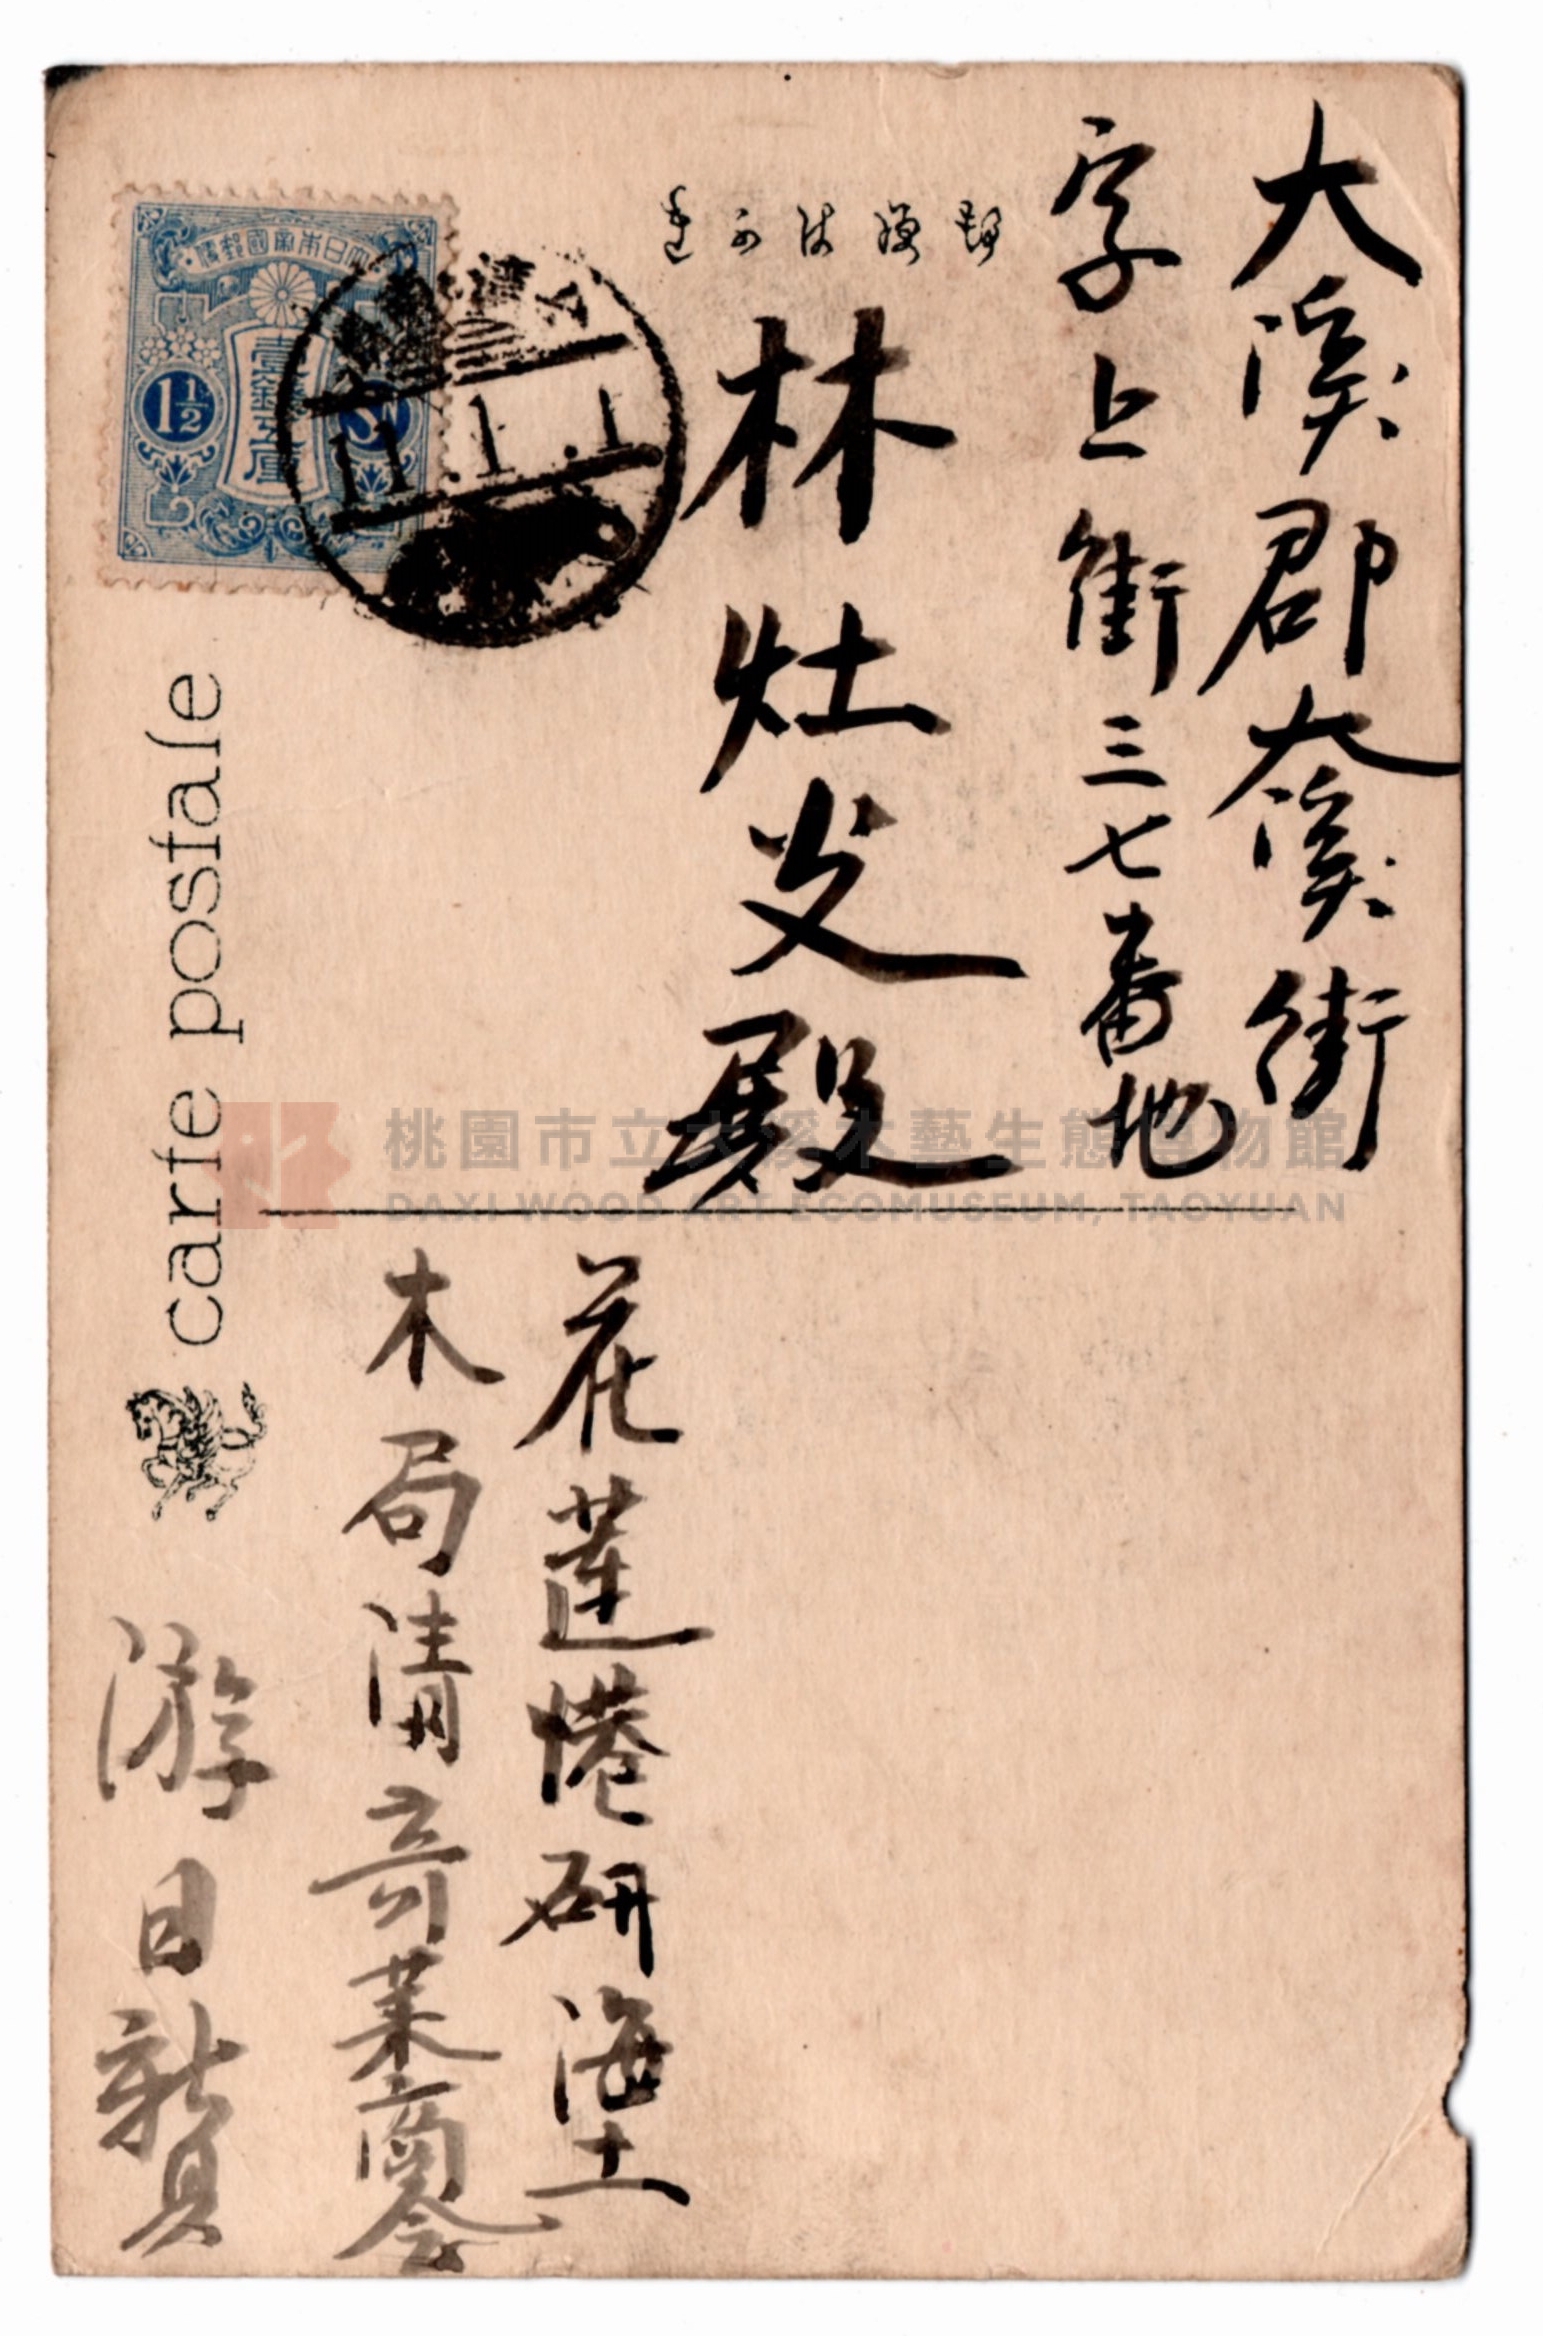 大溪郡大溪街
字上街三七番地
林灶炎殿
郵便はがき
大日本帝國郵便
壹錢五厘
1½
Sn
11.1.1
carte postale
桃園市立大溪木藝生態博物館
DAXI WOOD ART ECOMUSEUM, TAOYUAN
花蓮港研海土
木局清奇萊商会
游日贊